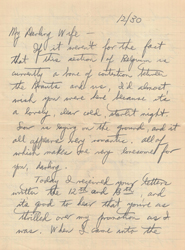 12/30
My Darling Wife —
If it wasn't for the fact
that this section of Belgium is
currently a bone of contention between
the Nazis and us, I'd almost
wish you were here because it's
a lovely, clear cold, starlit night.
Snow is lying on the ground, and it
all appears very romantic. All of
which makes me very lonesome for
you, darling.
Today I received your letters
written the 12th and 13th, and
it's good to hear that you're as
thrilled over my promotion as I
was. When I came into the